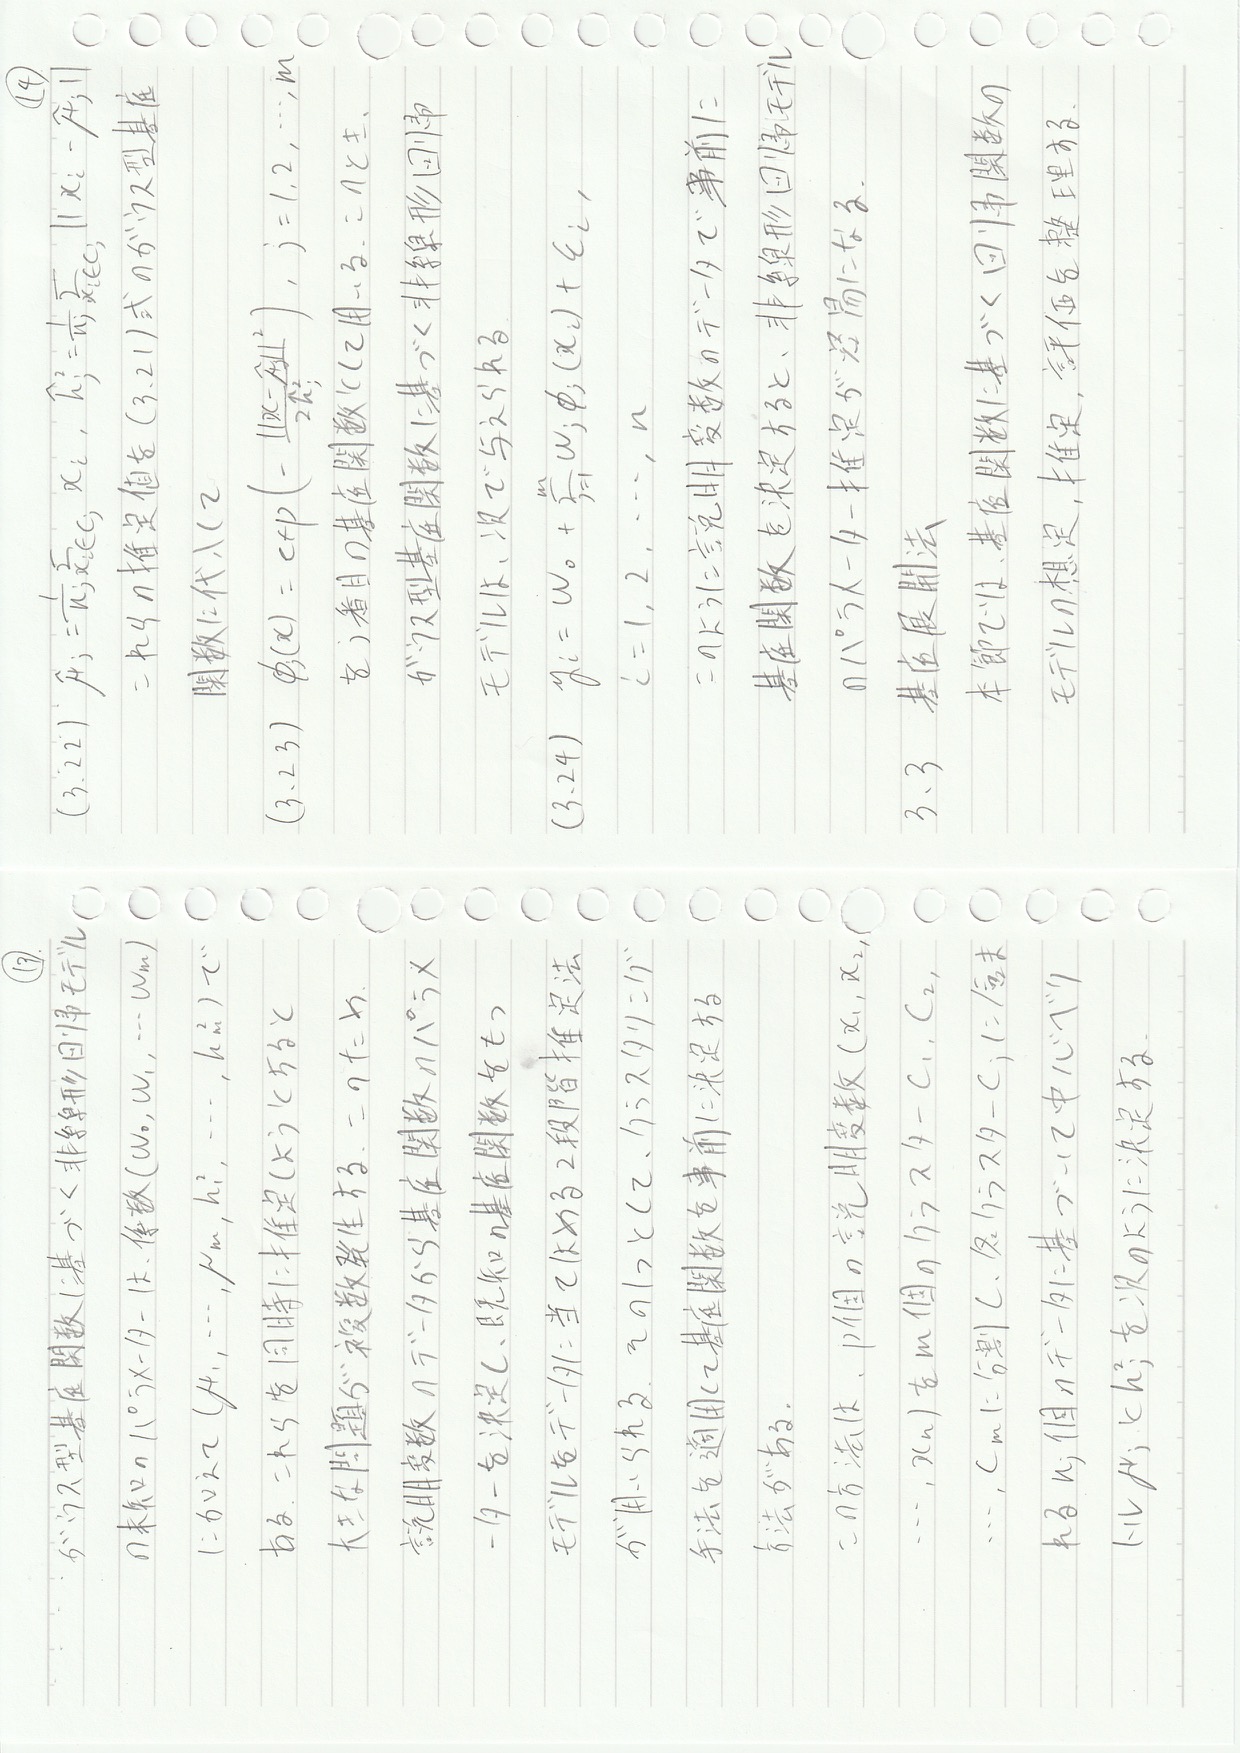 ⑬
ガウス型基底関数に基づく非線形回帰モデル
の未知のパラメーターは、係数(w₀, w₁, … wₘ)
に加えて(μ₁, …, μₘ, h₁², …, hₘ²)で
ある. これらを同時に推定しようとすると
大きな問題が複数発生する. このため.
説明変数のデータから基底関数のパラメ
ーターを決定し、既知の基底関数をもつ
モデルをデータに当てはめる2段階推定法
が用いられる. その1つとして、クラスタリング
手法を適用して基底関数を事前に決定する
方法がある.
この方法は、p個の説明変数(x₁, x₂,
…, xₙ)をm個のクラスターC₁, C₂,
…, Cₘに分割し、各クラスターCⱼに含ま
れるnⱼ個のデータに基づいて中心ベク
トルμⱼとhⱼ²を次のように決定する.
⑭
(3.22) μ̂ⱼ = 1/nⱼ Σ_{xᵢ∈Cⱼ} xᵢ , ĥⱼ² = 1/nⱼ Σ_{xᵢ∈Cⱼ} ||xᵢ - μ̂ⱼ||
これらの推定値を(3.21)式のガウス型基底
関数に代入して
(3.23) φⱼ(x) = exp(- ||x-μ̂ⱼ||² / 2ĥⱼ²) , j = 1, 2, …, m
をj番目の基底関数として用いる. このとき、
ガウス型基底関数に基づく非線形回帰
モデルは、次で与えられる
(3.24) yᵢ = w₀ + Σ_{j=1}^{m} wⱼ φⱼ(xᵢ) + εᵢ ,
i = 1, 2, …, n
このように説明変数のデータで事前に
基底関数を決定すると、非線形回帰モデル
のパラメーター推定が容易になる.
3.3 基底展開法
本節では、基底関数に基づく回帰関数の
モデルの想定, 推定, 評価を整理する.